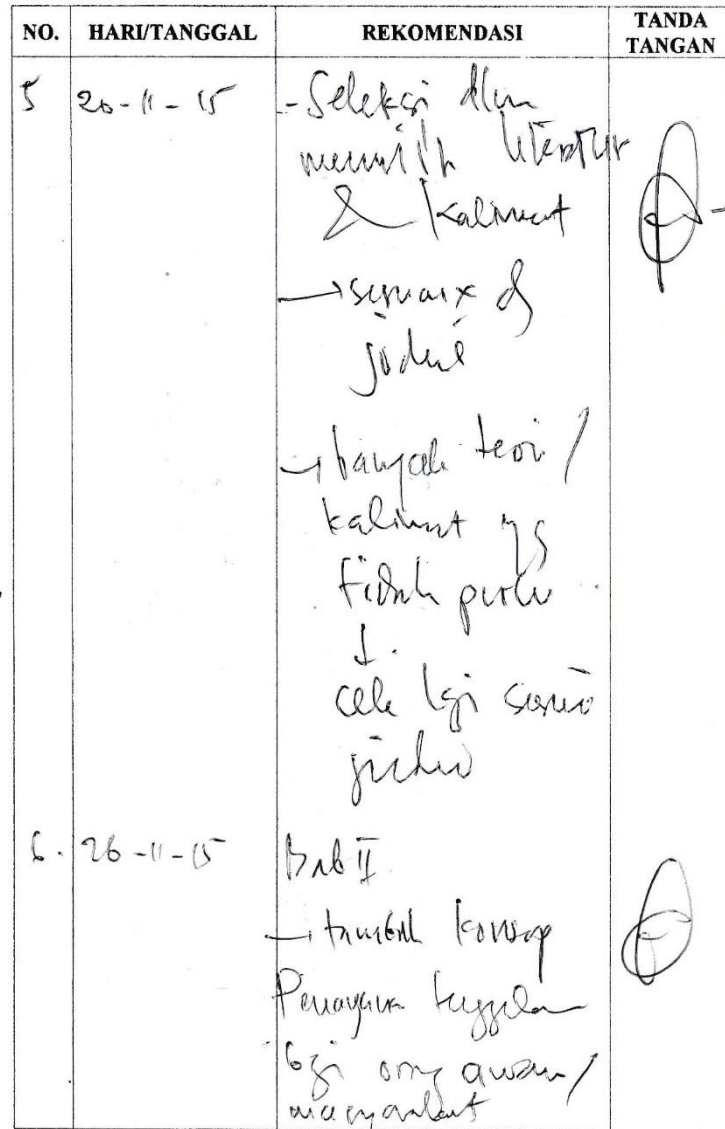 NO. HARI/TANGGAL REKOMENDASI TANDA TANGAN
5 20-11-15 - Seleksi dlm
memilih literatur
& kalimat
→ sesuaix dg
judul
→ banyak teori /
kalimat yg
tidak perlu
↓.
cek lgi sesuai
judul
6. 26-11-15 Bab II
→ tambah konsep
bgi orng awam /
masyarakat